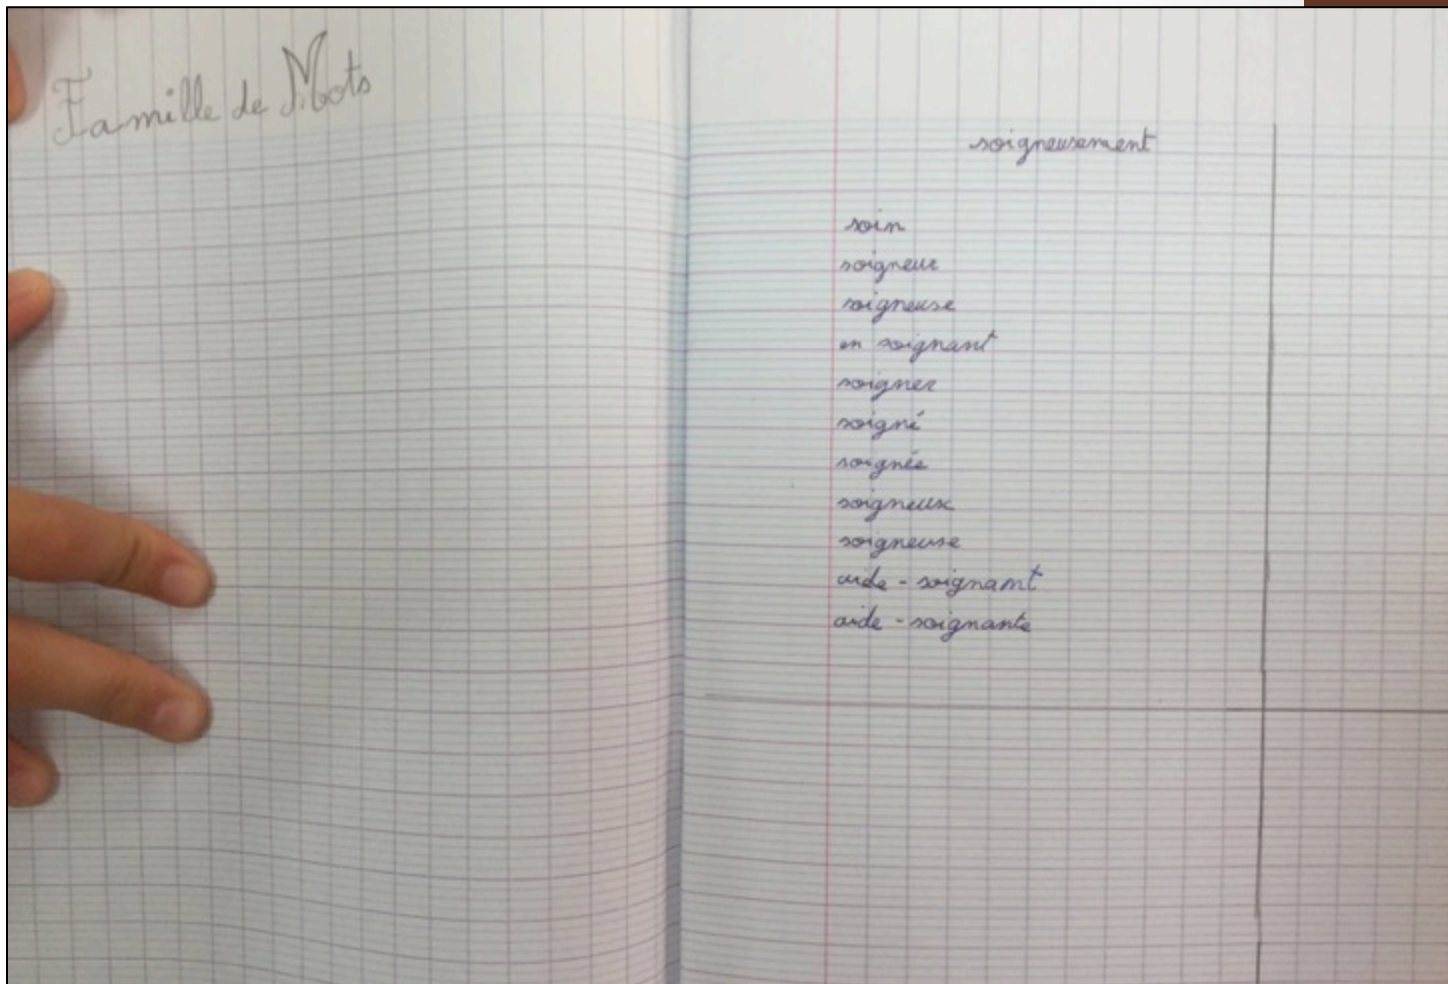 Famille de Mots
soigneusement
soin
soigneur
soigneuse
en soignant
soigner
soigné
soignée
soigneux
soigneuse
aide-soignant
aide-soignante